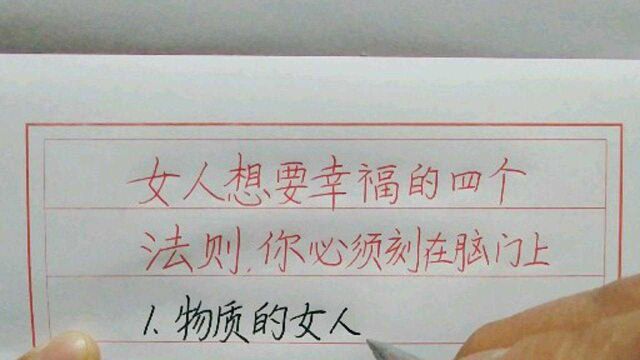 女人想要幸福的四个
法则,你必须刻在脑门上
1、物质的女人